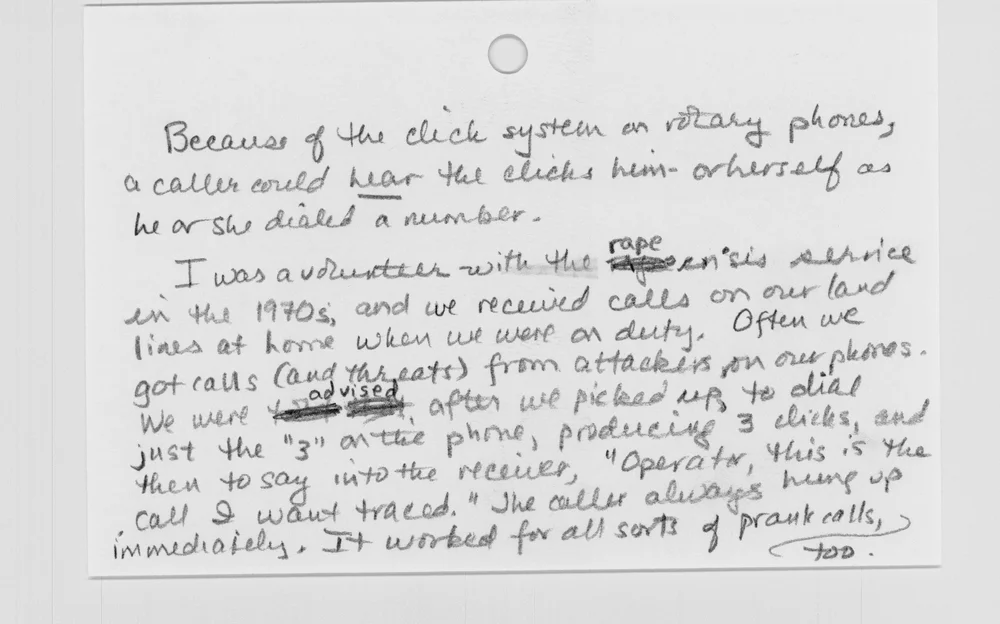 Because of the click system on rotary phones,
a caller could hear the clicks him- or herself as
he or she dialed a number.
I was a volunteer with the rape crisis service
in the 1970s, and we received calls on our land
lines at home when we were on duty. Often we
got calls (and threats) from attackers, on our phones.
We were advised, after we picked up, to dial
just the "3" on the phone, producing 3 clicks, and
then to say into the receiver, "Operator, this is the
call I want traced." The caller always hung up
immediately. It worked for all sorts of prank calls,
too.